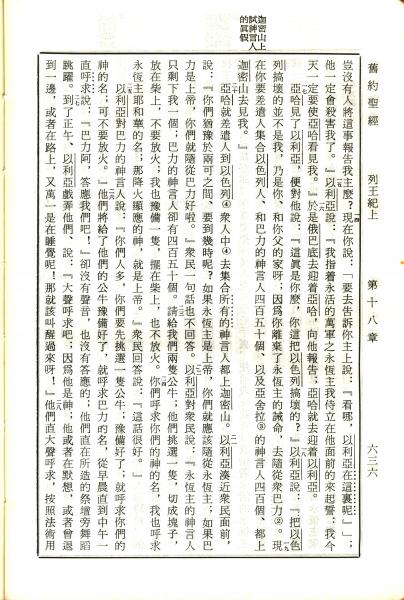 舊約聖經　列王紀上　第十八章　六三六
迦密山上
試神言人
的眞假
豈沒有人將這事報告我主麼?現在你說:『要去告訴你主上說:『看哪　以利亞在這裏呢』』;
他一定會殺害我了。」以利亞說:『我指着永活的萬軍之永恆主我侍立在他面前的來起誓:我今
天一定要使亞哈看見我。』於是俄巴底去迎着亞哈,向他報告;亞哈就去迎着以利亞。
亞哈見了以利亞,便對他說:『這眞是你麼,你這把以色列搞壞的?』以利亞說:『把以色
列搞壞的並不是我,乃是你、和你父的家呀;因爲你離棄了永恆主的誡命,去隨從衆巴力②。現
在你要差遣人集合以色列人、和巴力的神言人四百五十個、以及亞舍拉③的神言人四百個、都上
迦密山去見我。』
亞哈就差遣人到以色列④衆人中④去集合所有的神言人都上迦密山。以利亞湊近衆民面前,
說:『你們猶豫於兩可之間、要到幾時呢?如果永恆主是上帝,你們就應該隨從永恆主;如果巴
力是上帝,你們就隨從巴力好啦。』衆民一句話也不回答。以利亞對衆民說:『永恆主的神言人
只剩下我一個;巴力的神言人卻有四百五十個。請給我們兩隻公牛;他們挑選一隻,切成塊子,
放在柴上,不要放火;我也豫備一隻,擺在柴上,也不放火。你們呼求你們的神的名,我也呼求
永恆主耶和華的名;那降火顯應的神,就是上帝。』衆民回答說:『這話很好。』
以利亞對巴力的神言人說:『你們人多,你們要先挑選一隻公牛;豫備好了;就呼求你們的
神的名;可不要放火。』他們將給了他們的公牛豫備好了,就呼求巴力的名,從早晨直到中午一
直呼求說:『巴力阿,答應我們吧!』卻沒有聲音,也沒有答應的;他們直在所造的祭壇旁舞蹈
跳躍。到了正午、以利亞戲弄他們,說:『大聲呼求吧;因爲他是神;他或者在默想,或者會退
到一邊,或者在路上,又萬一是在睡覺呢!那就該叫醒過來呀!』他們直大聲呼求,按照法術用